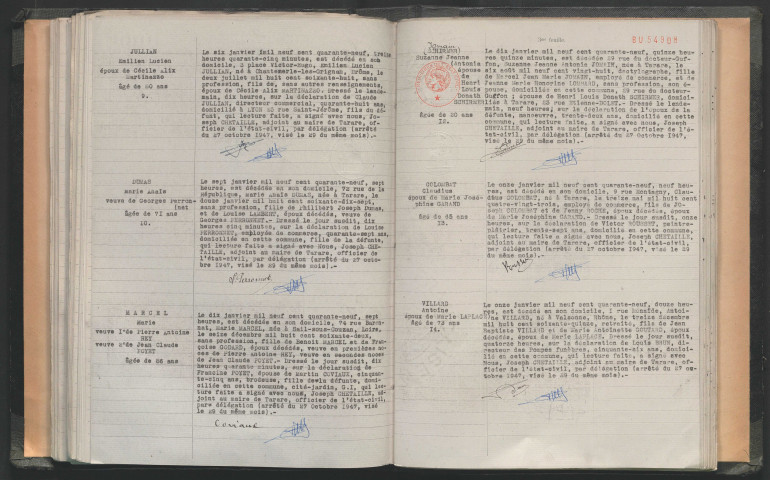 JULLIAN
Emilien Lucien
époux de Cécile Alix
Martinasso
Agé de 80 ans
9.
Le six janvier mil neuf cent quarante-neuf, treize
heures quarante-cinq minutes, est décédé en son
domicile, 2 place Victor-Hugo, Emilien Lucien
JULLIAN, né à Chantemerle-les-Grignan, Drôme, le
deux juillet mil huit cent soixante-huit, sans
profession, fils de, sans autres renseignements,
époux de Cécile Alix MARTINASSO.- Dressé le lende-
main, dix heures, sur la déclaration de Claude
JULLIAN, directeur commercial, quarante-huit ans,
domicilié à LYON 23 rue Saint-Jérôme, fils du dé-
funt, qui lecture faite, a signé avec nous, Jo-
seph CHETAILLE, adjoint au maire de Tarare, of-
ficier de l'état-civil, par délégation (arrêté
du 27 Octobre 1947, visé le 29 du même mois).-
DUMAS
Marie Anaïs
veuve de Georges Perron-
net
Agée de 71 ans
10.
Le sept janvier mil neuf cent quarante-neuf, sept
heures, est décédée en son domicile, 72 rue de la
République, Marie Anaïs DUMAS, née à Tarare, le
douze janvier mil huit cent soixante-dix-sept,
sans profession, fille de Philibert Joseph Dumas,
et de Louise LAMBERT, époux décédés, veuve de
Georges PERRONNET.- Dressé le jour susdit, dix
heures cinq minutes, sur la déclaration de Louise
PERRONNET, employée de commerce, quarante-sept ans,
domiciliée en cette commune, fille de la défunte,
qui lecture faite a signé avec Nous, Joseph CHE-
TAILLE, adjoint au maire de Tarare, officier de
l'état-civil, par délégation (arrêté du 27 octo-
bre 1947, visé le 29 du même mois).-
MARCEL
Marie
veuve 1°de Pierre Antoine
REY
veuve 2°de Jean Claude
POYET
Agée de 88 ans
Le dix janvier mil neuf cent quarante-neuf, sept
heures, est décédée en son domicile, 74 rue Baron-
net, Marie MARCEL, née à Sail-sous-Couzan, Loire,
le seize décembre mil huit cent soixante,
sans profession, fille de Benoit MARCEL et de Fran-
çoise GODARD, époux décédés, veuve en premières no-
ces de Pierre Antoine REY, veuve en secondes noces
de Jean Claude POYET.- Dressé le jour susdit, dix
heures quarante minutes, sur la déclaration de
Francine POYET, épouse de Martin COVIAUX, cinquan-
te-cinq ans, brodeuse, fille de la défunte, domi-
ciliée en cette commune, cité-jardin, G.I, qui lec-
ture faite a signé avec nous, Joseph CHETAILLE, ad-
joint au maire de Tarare, officier de l'état-civil,
par délégation (arrêté du 27 Octobre 1947, visé
le 29 du même mois).-
Coviaux
Suzanne Jeanne
épouse
de
Henri
Louis
Donath
Agée de 20 ans
12.
Le dix janvier mil neuf cent quarante-neuf, quinze heu-
res quinze minutes, est décédée 29 rue du docteur-Guf-
fon, Suzanne Jeanne Antonie JONHIN, née à Tarare, le
six août mil neuf cent vingt-huit, dactylographe, fille
de Marcel Jean Marie JONHIN, employé de commerce, et de
sans profession, son é-
pouse, domiciliés en cette commune, 29 rue du docteur-
Guffon ; épouse de Henri Louis Donath
né à Tarare, 23 rue Etienne-Dolet.- Dressé le lende-
main, neuf heures, sur la déclaration de l'époux de la
défunte, manoeuvre, trente-deux ans, domicilié en cette
commune, qui lecture faite, a signé avec nous, Joseph
CHETAILLE, adjoint au maire de Tarare, officier de l'é-
tat-civil, par délégation (arrêté du 27 Octobre 1947,
visé le 29 du même mois).-
COLOMBET
Claudius
époux de Marie José-
phine GARAND
Agé de 65 ans
13.
Le onze janvier mil neuf cent quarante-neuf, neuf heu-
res, est décédé en son domicile, 9 rue Montagny, Clau-
dius COLOMBET, né à Tarare, le treize mai mil huit cent
quatre-vingt-trois, employé de commerce, fils de Jo-
seph COLOMBET et de Fanny ROCHE, époux décédés, époux
de Marie Joséphine GARAND.- Dressé le jour susdit, onze
heures, sur la déclaration de Victor BOURRAT, peintre-
plâtrier, trente-sept ans, domicilié en cette commune,
qui lecture faite a signé avec nous, Joseph CHETAILLE,
adjoint au maire de Tarare, officier de l'état-civil,
par délégation (arrêté du 27 Octobre 1947, visé le 29
du même mois).-
VILLARD
Antoine
époux de Marie LAPLACE
Agé de 79 ans
14.
Le onze janvier mil neuf cent quarante-neuf, douze heu-
res, est décédé en son domicile, 1 rue Rosaîne, Antoi-
ne VILLARD, né à Valsonne, Rhône, le treize Décembre
mil huit cent soixante-quinze, retraité, fils de Jean
Baptiste VILLARD et de Marie Antoinette COUTARD, époux
décédés, époux de Marie LAPLACE.- Dressé le jour susdit,
quatorze heures, sur la déclaration de Louis BRUN, di-
recteur des Pompes funèbres, cinquante-six ans, domici-
lié en cette commune, qui lecture faite, a signé avec
Nous, Joseph CHETAILLE, adjoint au maire de Tarare, of-
ficier de l'état-civil, par délégation (arrêté du 27 oc-
tobre 1947, visé le 29 du même mois).-